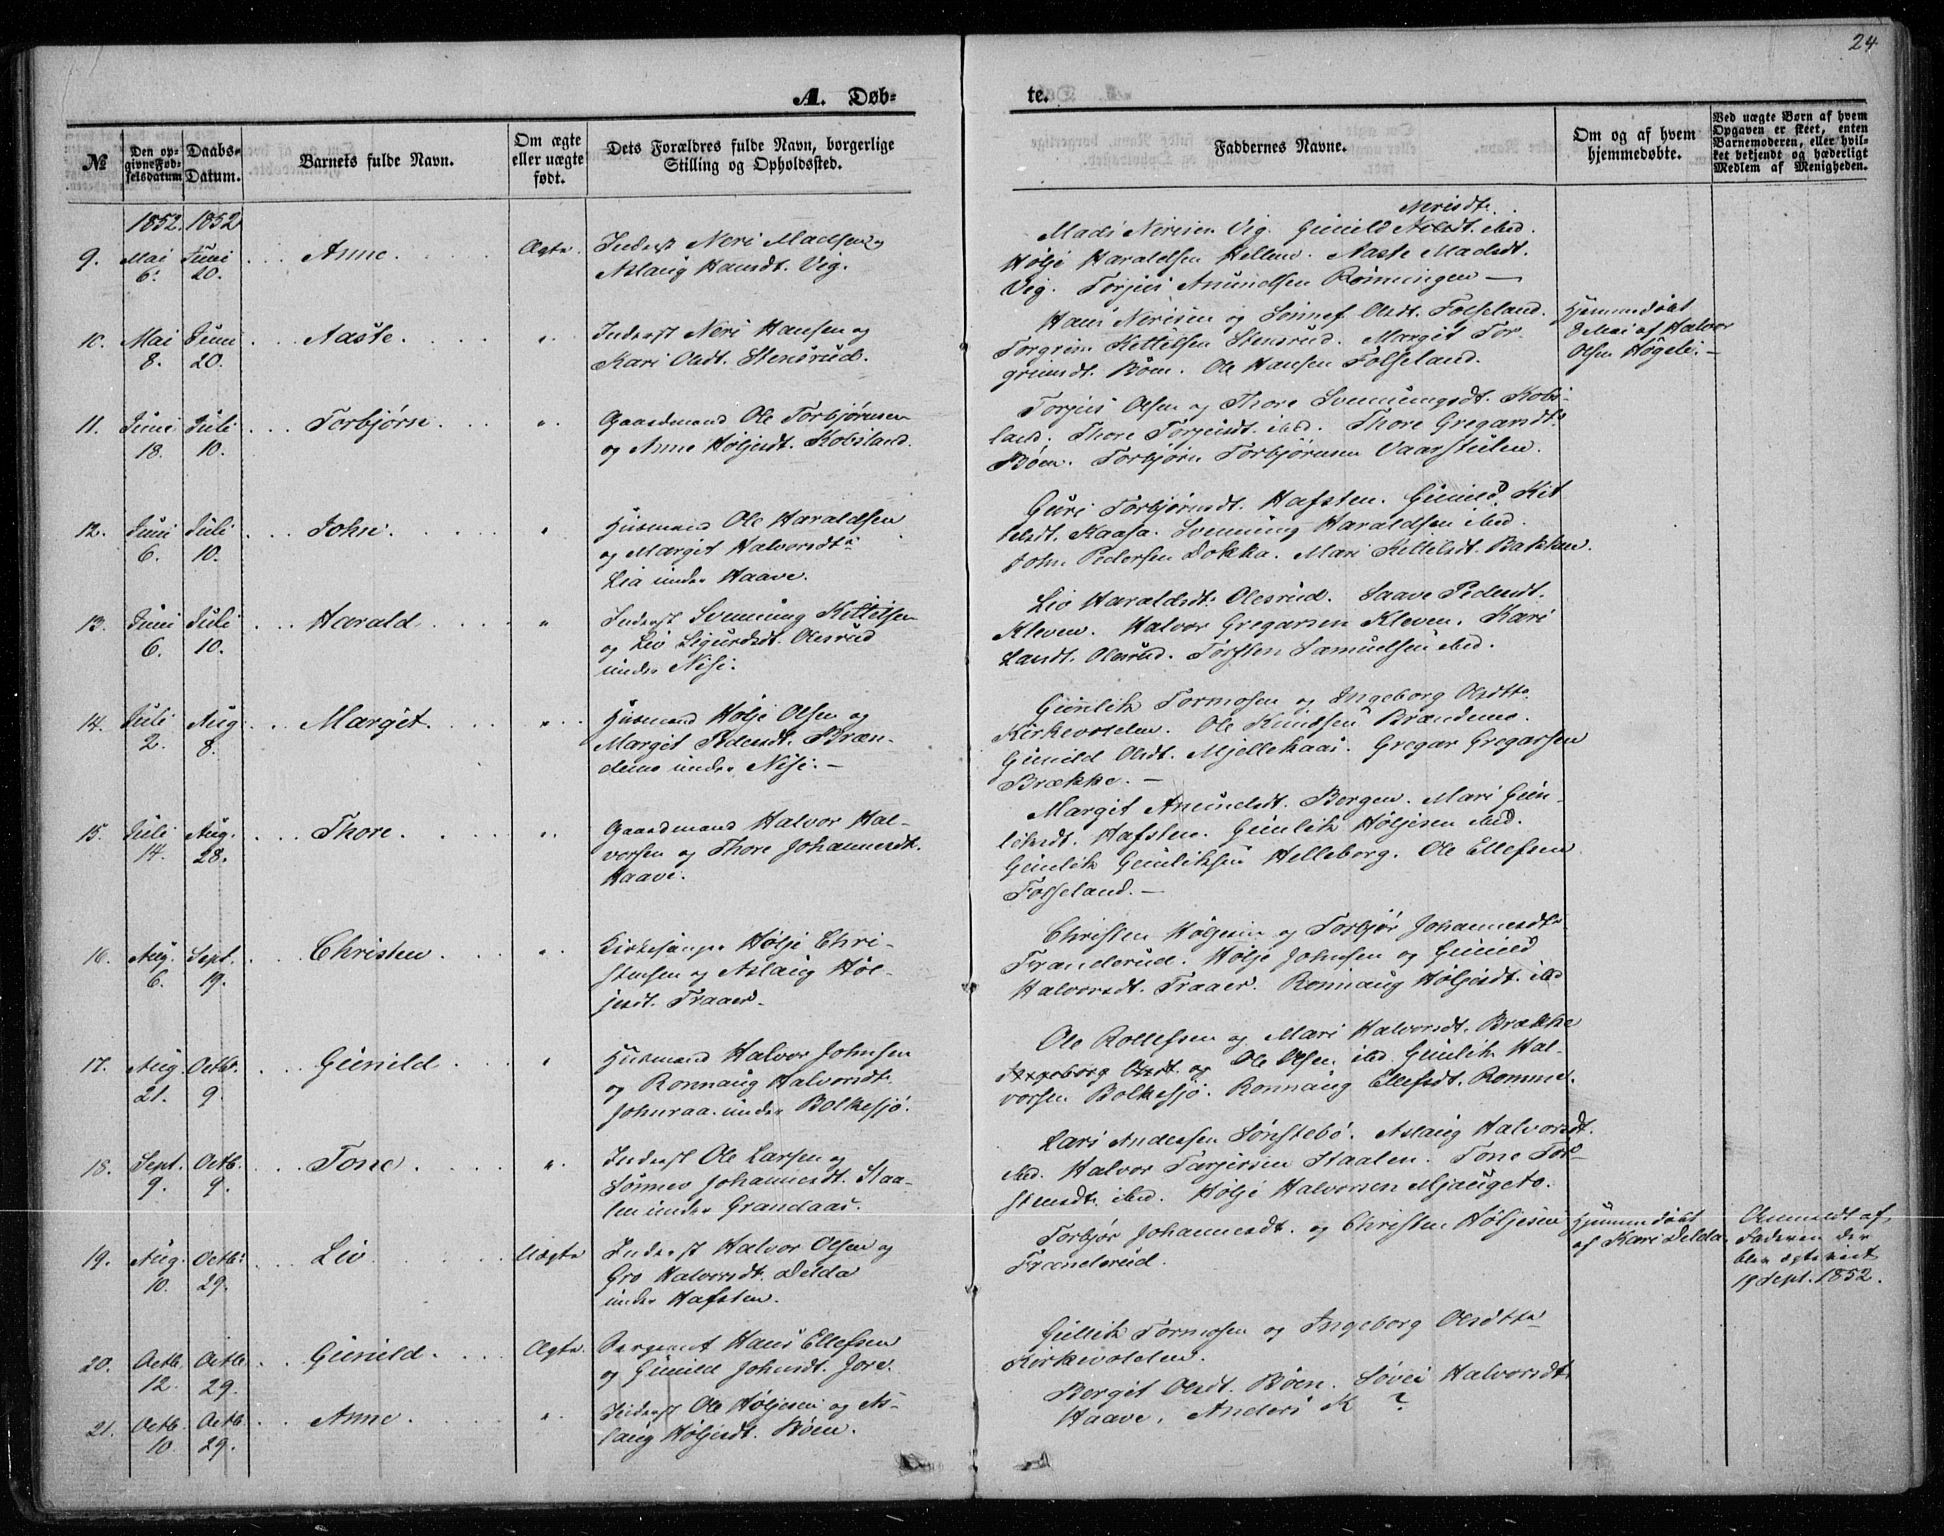 24
A. Døb-
te.
№
Den op-
givne Fød-
selsdatum
Daabs-
Datum.
Barnets fulde Navn.
Om ægte
eller uægte
født.
Dets Forældres fulde Navn, borgerlige
Stilling og Opholdssted.
Faddernes Navne.
Om og af hvem
hjemmedøbte.
Ved uægte Børn af hvem
Opgaven er skeet, enten
Barnemoderen, eller hvil-
ket bekjendt og hæderligt
Medlem af Menigheden.
1852. 1852
9. Mai 6. Juni 20. Anne. Ægte.
Inderst Neri Madsen og
Aslaug Hansdt. Vig.
Nerisdt.
Mads Nerisen Vig. Gunild ibid.
Hølje Haraldsen Hellem. Aaste Madsdt.
Vig. Torjus Amundsen Rønningen —
10. Mai 8. Juni 20. Aaste. "
Inderst Neri Hansen og
Kari Olsdt. Stensrud.
Hans Nerisen og Sønnef. Olsdt. Fosseland.
Torgrim Kettilsen Stensrud. Margit Tor-
grimsdt. Bøen. Ole Hansen Følseland.
Hjemmedøbt
8 Mai af Halvor
Olsen Høgeli. —
11. Juni 18. Juli 10. Torbjørn. "
Gaardmand Ole Torbjørnsen
og Anne Høljesdt. Kobsland.
Torjus Olsen og Thore Svenningsdt. Kobs-
land. Thore Torjusdt. ibid. Thore Gregarsdt.
Bøen. Torbjørn Torbjørnsen Vaarstulen.
12. Juni 6. Juli 10. John. "
Husmand Ole Haraldsen
og Margit Halvorsdt.
Lia under Haave.
Guri Torbjørnsdt. Hafsten. Gunild Kit
telsdt. Kaasa. Svenning Haraldsen ibid.
John Pedersen Dokka. Mari Kittelsdt. Bakken.
13. Juni 6. Juli 10. Harald. "
Inderst Svenning Kittilsen
og Liv Sigurdsdt. Olesrud
under Nisi.
Liv Haraldsdt. Olesrud. Saave Pedersdt.
Kleven. Halvor Gregarsen Kleven. Kari
Larsdt. Olesrud. Torsten Samuelsen ibid.
14. Juli 2. Aug 8. Margit. "
Husmand Hølje Olsen og
Margit Pedersdt. Bræn-
demo under Nisi. —
Gunlik Tormosen og Ingeborg Olsdtr.
Kirkevolden. Ole Knudsen Brændemo.
Gunild Olsdt. Mjellekaas. Gregar Gregarsen
Brække. —
15. Juli 14. Aug. 28. Thore. "
Gaardmand Halvor Hal-
vorsen og Thore Johannesdt.
Haave.
Margit Amundsdt. Bergen. Mari Gun-
liksdt. Hafsten. Gunlik Høljesen ibid.
Gunlik Gunliksen Helleborg. Ole Ellefsen
Fosseland. —
16. Aug. 6. Sept. 19. Christen. "
Kirkesanger Hølje Chri-
stensen og Aslaug Høl-
jesdt. Traaer.
Christen Høljesen og Torbjør Johannesdt.
Frænderud. Hølje Johnsen og Gunild
Halvorsdt. Traaer. Rønnaug Høljesdt. ibid
17. Aug. 21. Octbr. 9. Gunild. "
Husmand Halvor Johnsen
og Rønnaug Halvorsdt.
Johnraa under Bolkesjø.
Ole Rollefsen og Mari Halvorsdt. Brække
Ingeborg Olsdt. og Ole Olsen ibid. Gunlik Hal-
vorsen Bolkesjø. Rønnaug Ellefsdt. Romme.
18. Sept. 9. Octb. 9. Tone. "
Inderst Ole Larsen og
Sønnev Johannesdt. Staa-
len under Grandaas.
Lars Andersen Sønstebø. Aslaug Halvorsdt.
ibid. Halvor Tarjersen Staalen. Tone Tor-
stensdt. ibid. Hølje Halvorsen Mjaugeto.
19. Aug. 10. Octb. 29. Liv. Uægte
Inderst Halvor Olsen og
Gro Halvorsdt. Delda
under Hafsten.
Torbjør Johannesdt. og Christen Høljesen
Frænderud.
Hjemmedøbt
af Kari Delda.
Anmeldt af
Faderen der
blev ægteviet
19 Sept. 1852.
20. Octb. 12. Octb. 29. Gunild. Ægte.
Sergeant Hans Ellefsen
og Gunild Johnsdt. Jore.
Gullik Tormosen og Ingeborg Olsdtr
Kirkevolden.
21. Octb. 10. Octb. 29. Anne. "
Inderst Ole Høljesen og As-
laug Høljesdt. Bøen.
Bergit Olsdt. Bøen. Søvei Halvorsdt.
Haave. Anders K ?